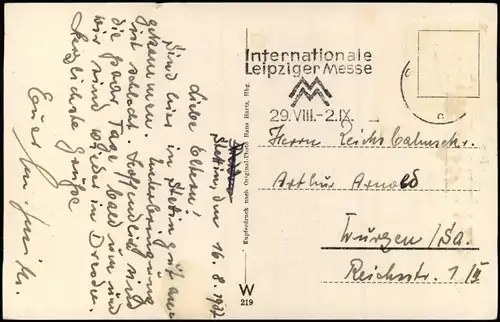 Stettin, den 16.8.1937
Liebe Eltern!
Sind hier in Stettin gut an-
gekommen. Unterbringung
ist schlecht. Hoffendlich sind
die paar Tage bald um und
wir sind wieder in Dresden.
Herzlichste Grüße
Euer
Kupferdruck nach Original-Photo Hans Hartz, Hbg.
W
219
Internationale
Leipziger Messe
29.VIII.-2.IX.
Herrn Reichsbahnsekr.
Arthur Arnold
Wurzen/Sa.
Reichsstr. 1/II